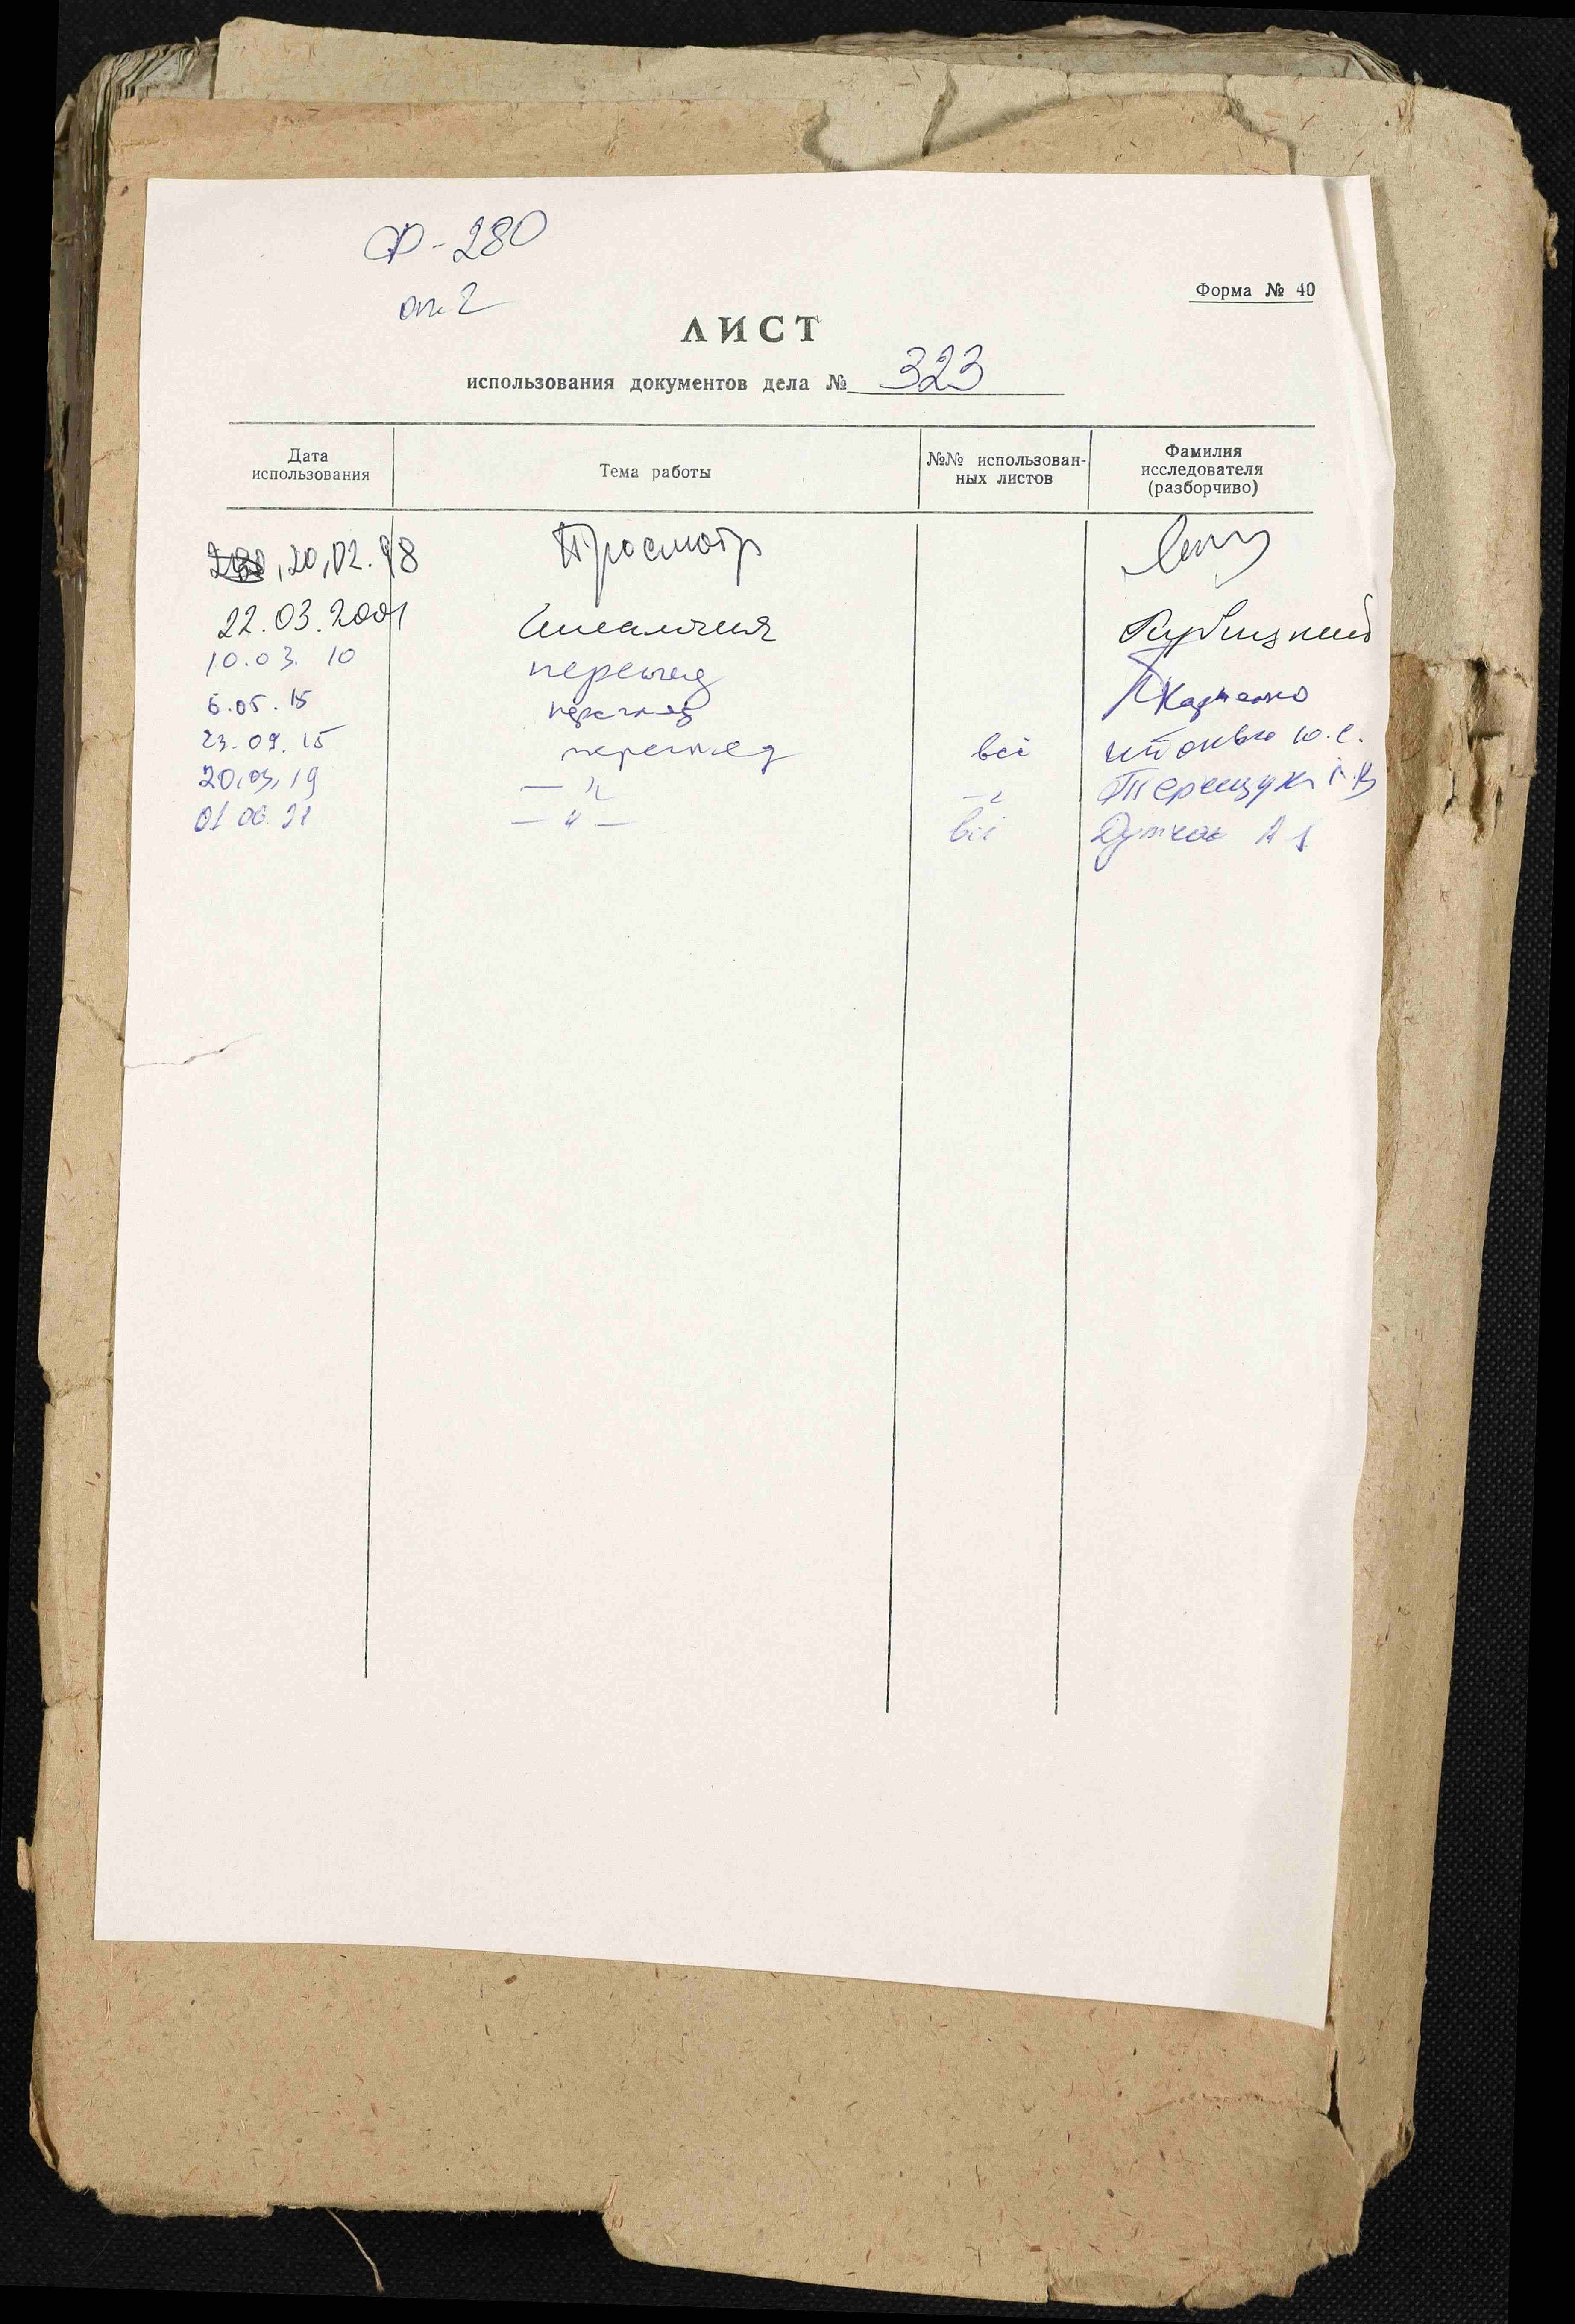 Ф-280
оп. 2
Форма № 40
ЛИСТ
использования документов дела № 323
Дата использования
Тема работы
№№ использован-
ных листов
Фамилия
исследователя
(разборчиво)
20,02.98 Просмотр
22.03.2001
10.03.10 перегляд
6.05.15 перегляд Карпенко
23.09.15 перегляд всі Ю.С.
20,03,19 — " — " Терещук
01 06 21 — " — всі